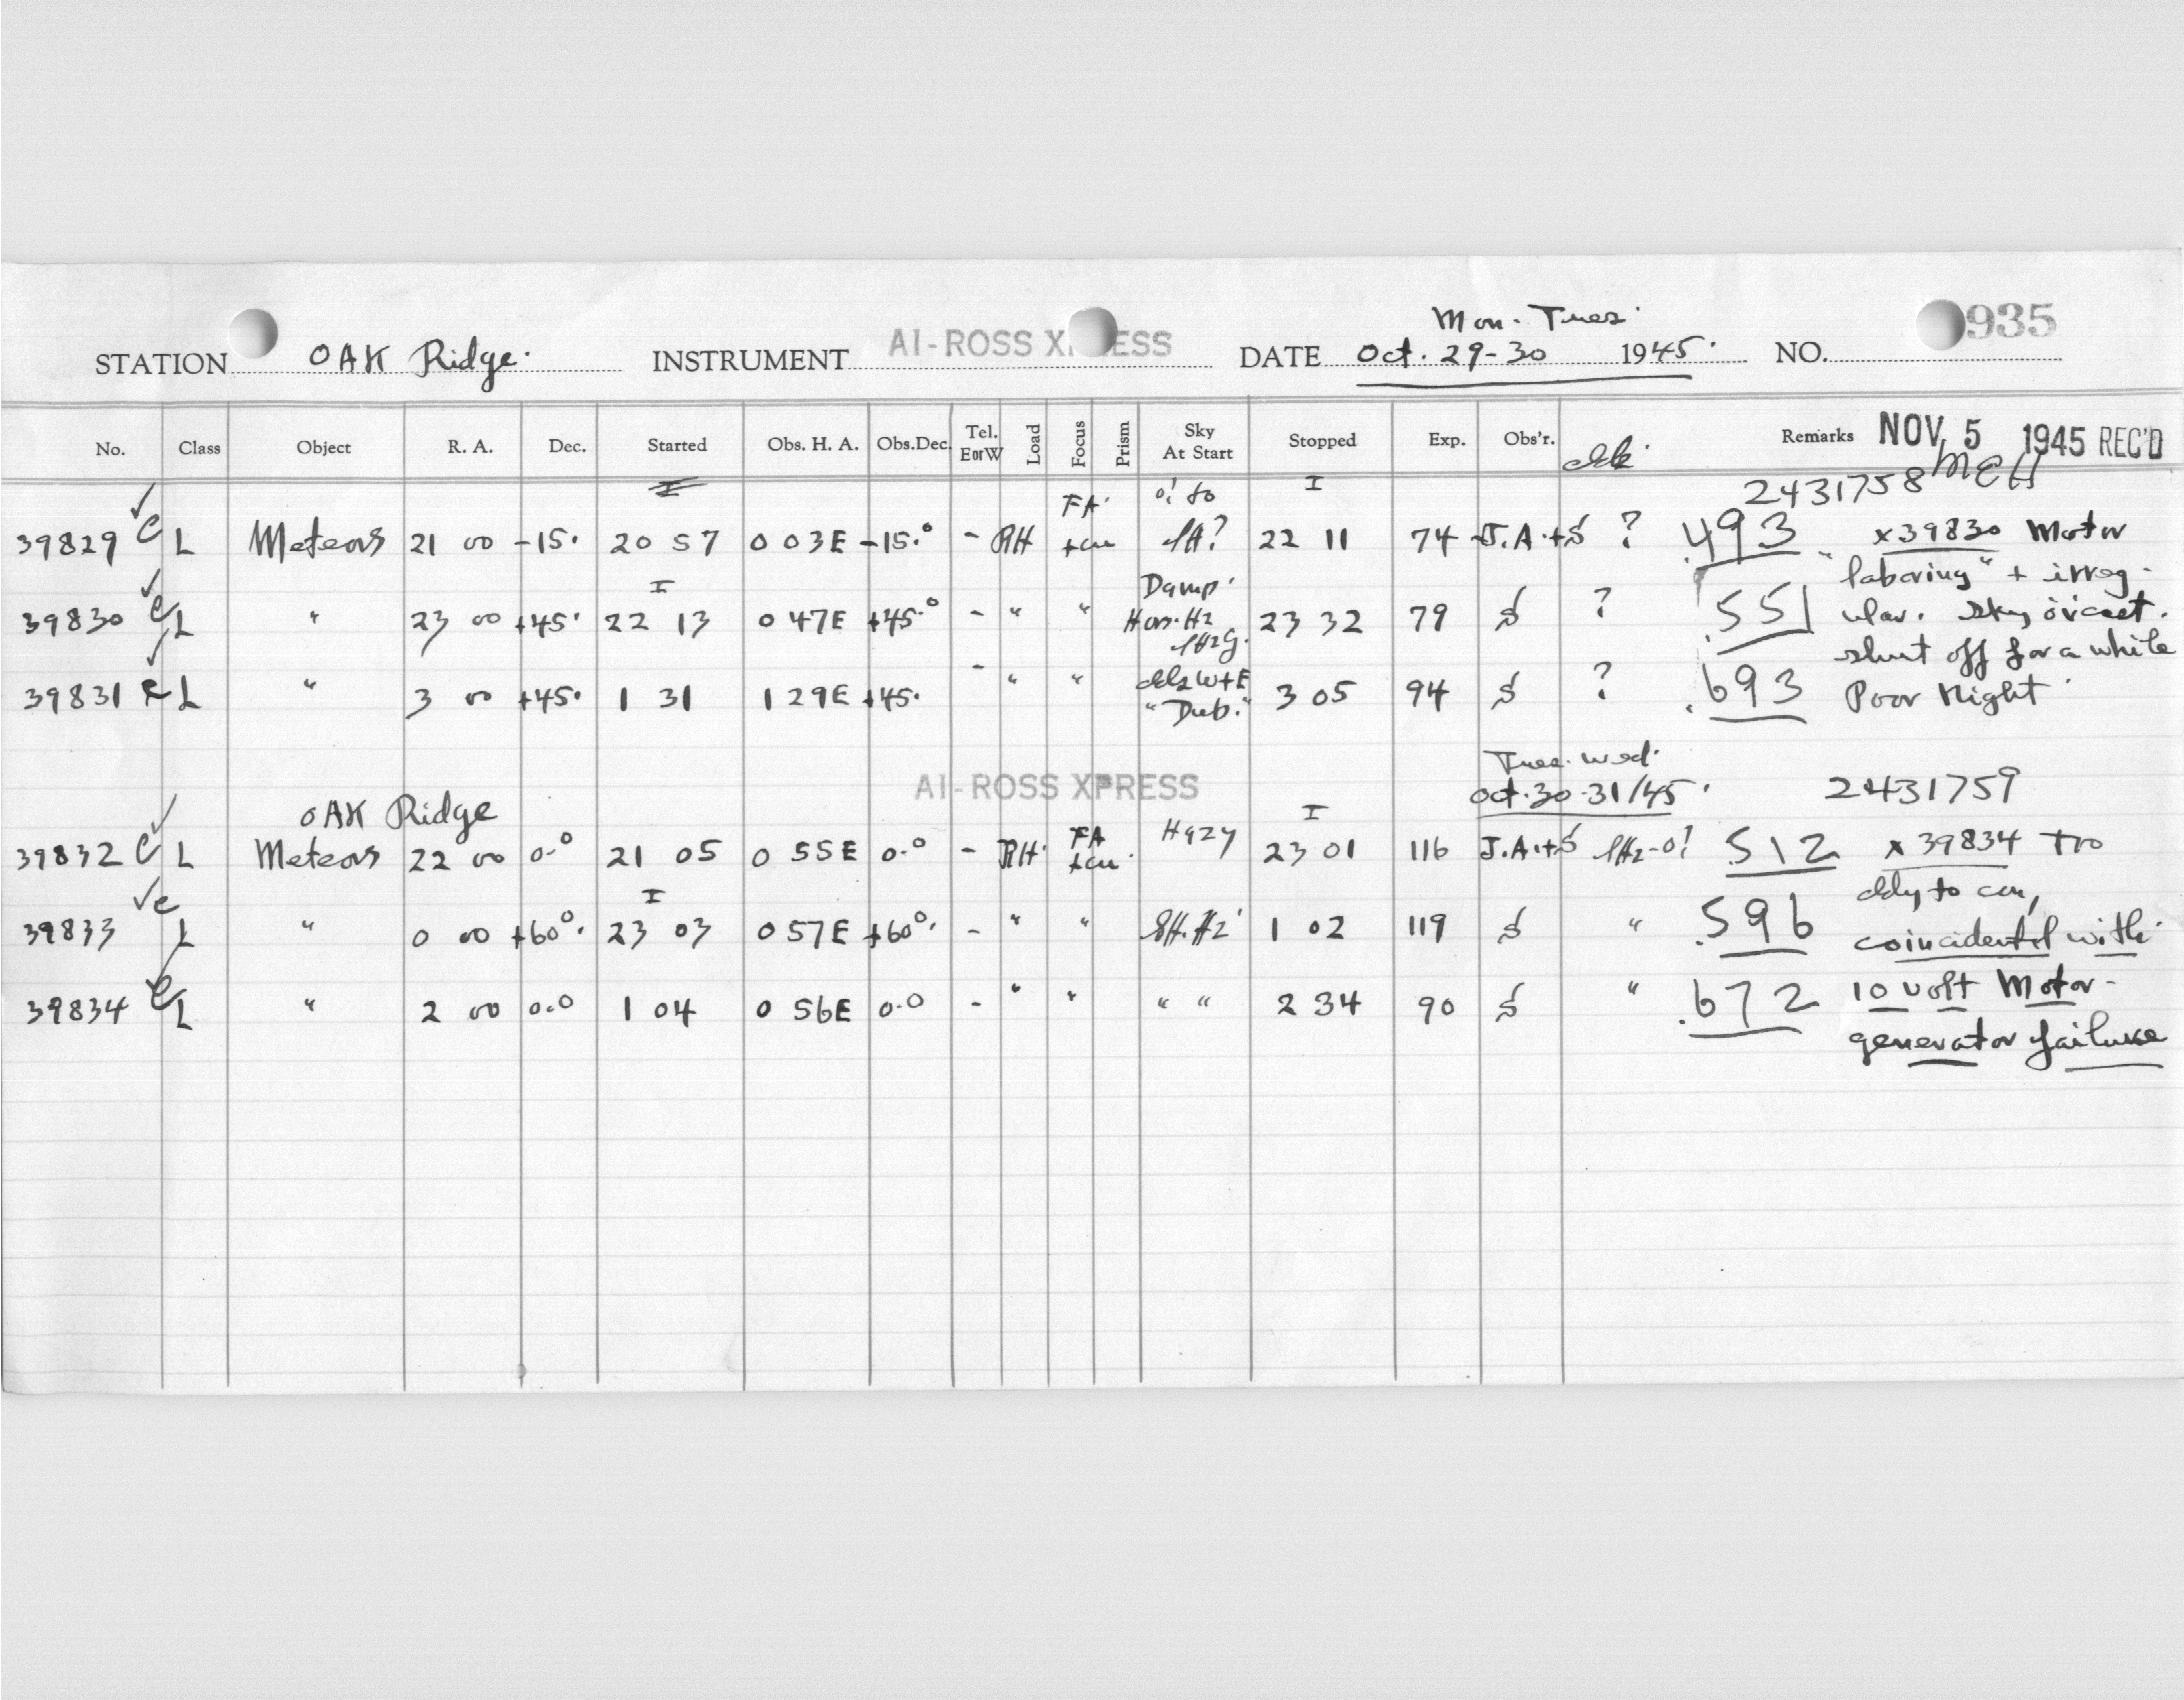 Mon. Tues.
935
STATION OAK Ridge. INSTRUMENT AI-ROSS X ESS DATE Oct. 29-30 1945. NO.
No. Class Object R. A. Dec. Started Obs. H. A. Obs.Dec. Tel. EorW Load Focus Prism Sky At Start Stopped Exp. Obs'r. Remarks NOV 5 1945 REC'D
2431758 MEH
39829 C L Meteors 21 00 -15. 20 57 0 03E -15.° - RH FA. 22 11 74 J.A.+S ? .493 x39830 Motor
"laboring" + irreg-
39830 C L " 23 00 +45. 22 13 0 47E +45.° - " " Damp. 23 32 79 S ? .551 ular. Sky o'cast.
shut off for a while
39831 C L " 3 00 +45. 1 31 1 29E +45. - " " "Dub." 3 05 94 S ? .693 Poor Night.
AI-ROSS XPRESS
Tues. Wed.
OAK Ridge Oct. 30-31/45. 2431759
39832 C L Meteors 22 00 0.° 21 05 0 55E 0.° - RH. FA Hazy 23 01 116 J.A.+S .512 x 39834 Too
cldy to con,
39833 C L " 0 00 +60°. 23 03 0 57E +60°. - " " 1 02 119 S " .596 coincidental with
39834 C L " 2 00 0.° 1 04 0 56E 0.° - " " " " 2 34 90 S " .672 10 volt Motor-
generator failure